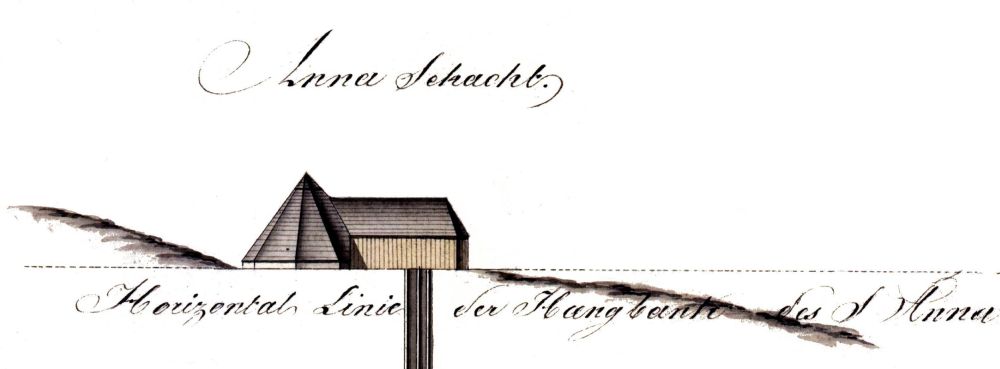 Anna Schacht.
Horizontal Linie der Hængbank des S Anna